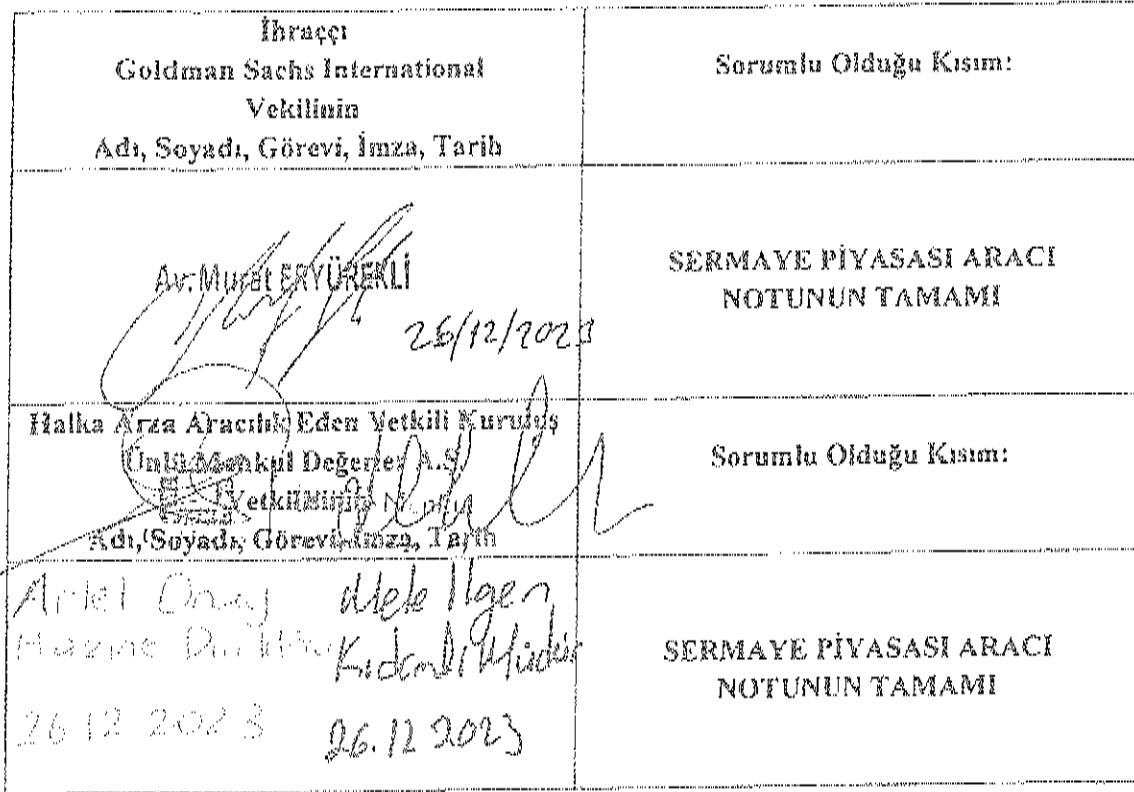 İhraççı
Goldman Sachs International
Vekilinin
Adı, Soyadı, Görevi, İmza, Tarih
Sorumlu Olduğu Kısım:
Av. Murat ERYÜREKLİ
26/12/2023
SERMAYE PİYASASI ARACI
NOTUNUN TAMAMI
Halka Arza Aracılık Eden Yetkili Kuruluş
Ünlü Menkul Değerler A.Ş.
Adı, Soyadı, Görevi, İmza, Tarih
Sorumlu Olduğu Kısım:
Mete İlgen
Kıdemli Müdür
26.12 2023
26 12 2023
SERMAYE PİYASASI ARACI
NOTUNUN TAMAMI